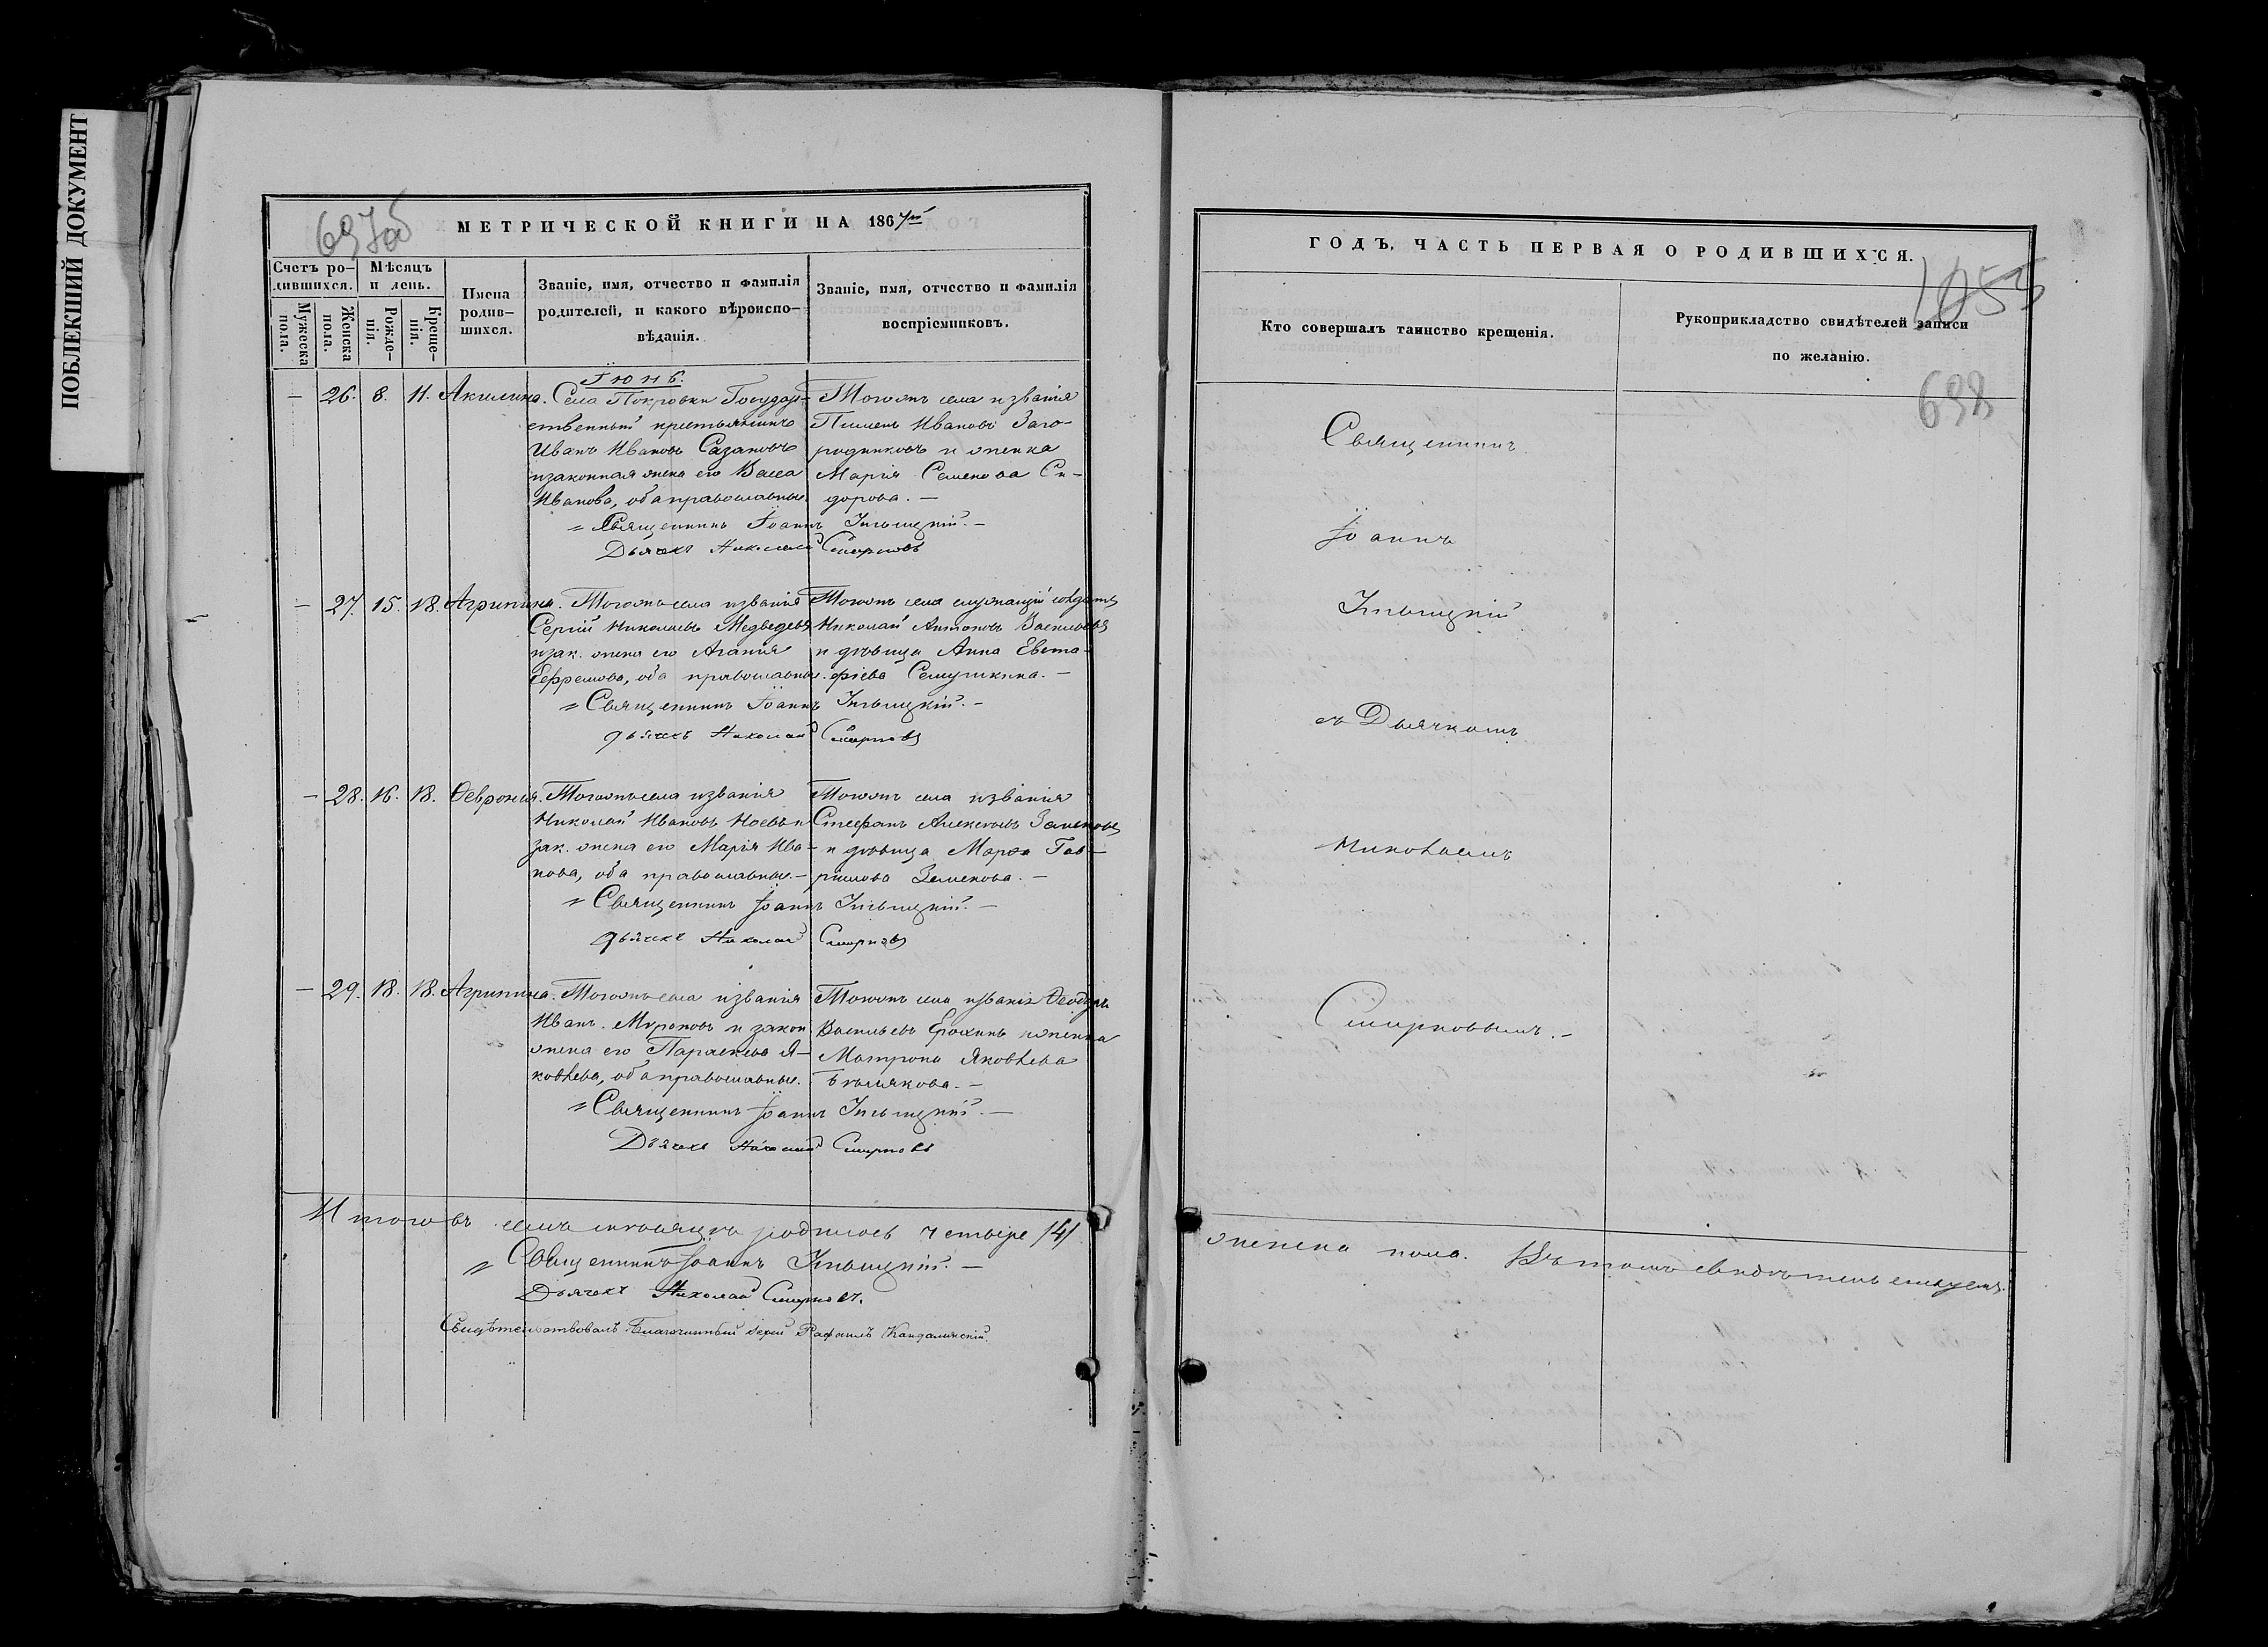 ПОБЛЕКШИЙ ДОКУМЕНТ
697об
МЕТРИЧЕСКОЙ КНИГИ НА 1867й
Счетъ родившихся.
Мужеска пола.
Женска пола.
Мѣсяцъ и день.
Рожденія.
Крещенія.
Имена родившихся.
Званіе, имя, отчество и фамилія
родителей, и какого вѣроиспо-
вѣданія.
Званіе, имя, отчество и фамилія
воспріемниковъ.
Іюнь.
— 26. 8. 11. Акилина.
Села Покровки Государ-
ственный крестьянинъ
Иванъ Ивановъ Сазановъ
и законная жена его Васса
Иванова, оба православные.
Тогожъ села и званія
Пименъ Ивановъ Заго-
родниковъ и женка
Марія Семенова Си-
дорова. —
Священникъ Іоаннъ
Дьячекъ Николай Смирновъ
— 27. 15. 18. Агрипина.
Тогожъ села и званія
Сергій Николаевъ Медведевъ
и зак. жена его Агапія
Ефремова, оба православные.
Тогожъ села служащій солдатъ
Николай Антоновъ Васильевъ
и дѣвица Анна Евста-
фіева Семушкина. —
Священникъ Іоаннъ
дьячекъ Николай Смирновъ
— 28. 16. 18. Феврония.
Тогожъ села и званія
Николай Ивановъ Ноевъ и
зак. жена его Марія Ива-
нова, оба православные. —
Тогожъ села и званія
Стефанъ Алексеевъ
и дѣвица Марѳа Гав-
рилова —
Священникъ Іоаннъ
дьячекъ Николай Смирновъ
— 29. 18. 18. Агрипина.
Тогожъ села и званія
Иван. Мироновъ и закон
жена его Параскева Я-
ковлева, оба православные.
Тогожъ села и званія Ѳеодоръ
Васильевъ Ерохинъ и женка
Матрона Яковлева
—
Священникъ Іоаннъ
Дьячекъ Николай Смирновъ
Итого въ семъ мѣсяцѣ родилось четыре /4/
Священникъ Іоаннъ
Дьячекъ Николай Смирновъ.
Свидѣтельствовалъ Благочинный Іерей Рафаилъ
ГОДЪ, ЧАСТЬ ПЕРВАЯ О РОДИВШИХСЯ.
1055
698
Кто совершалъ таинство крещенія.
Рукоприкладство свидѣтелей записи
по желанію.
Священникъ
Іоаннъ
съ Дьячкомъ
Николаемъ
Смирновымъ. —
женска пола. Въ томъ свидѣтельствуемъ.